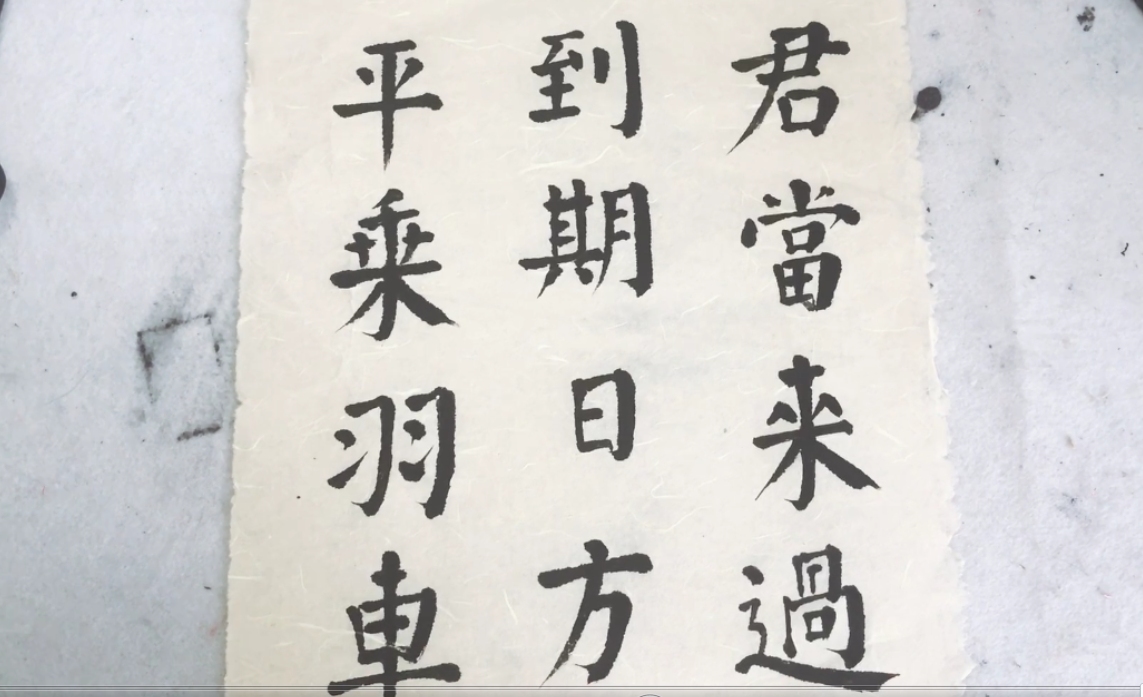 君當来過
到期日方
平乗羽車